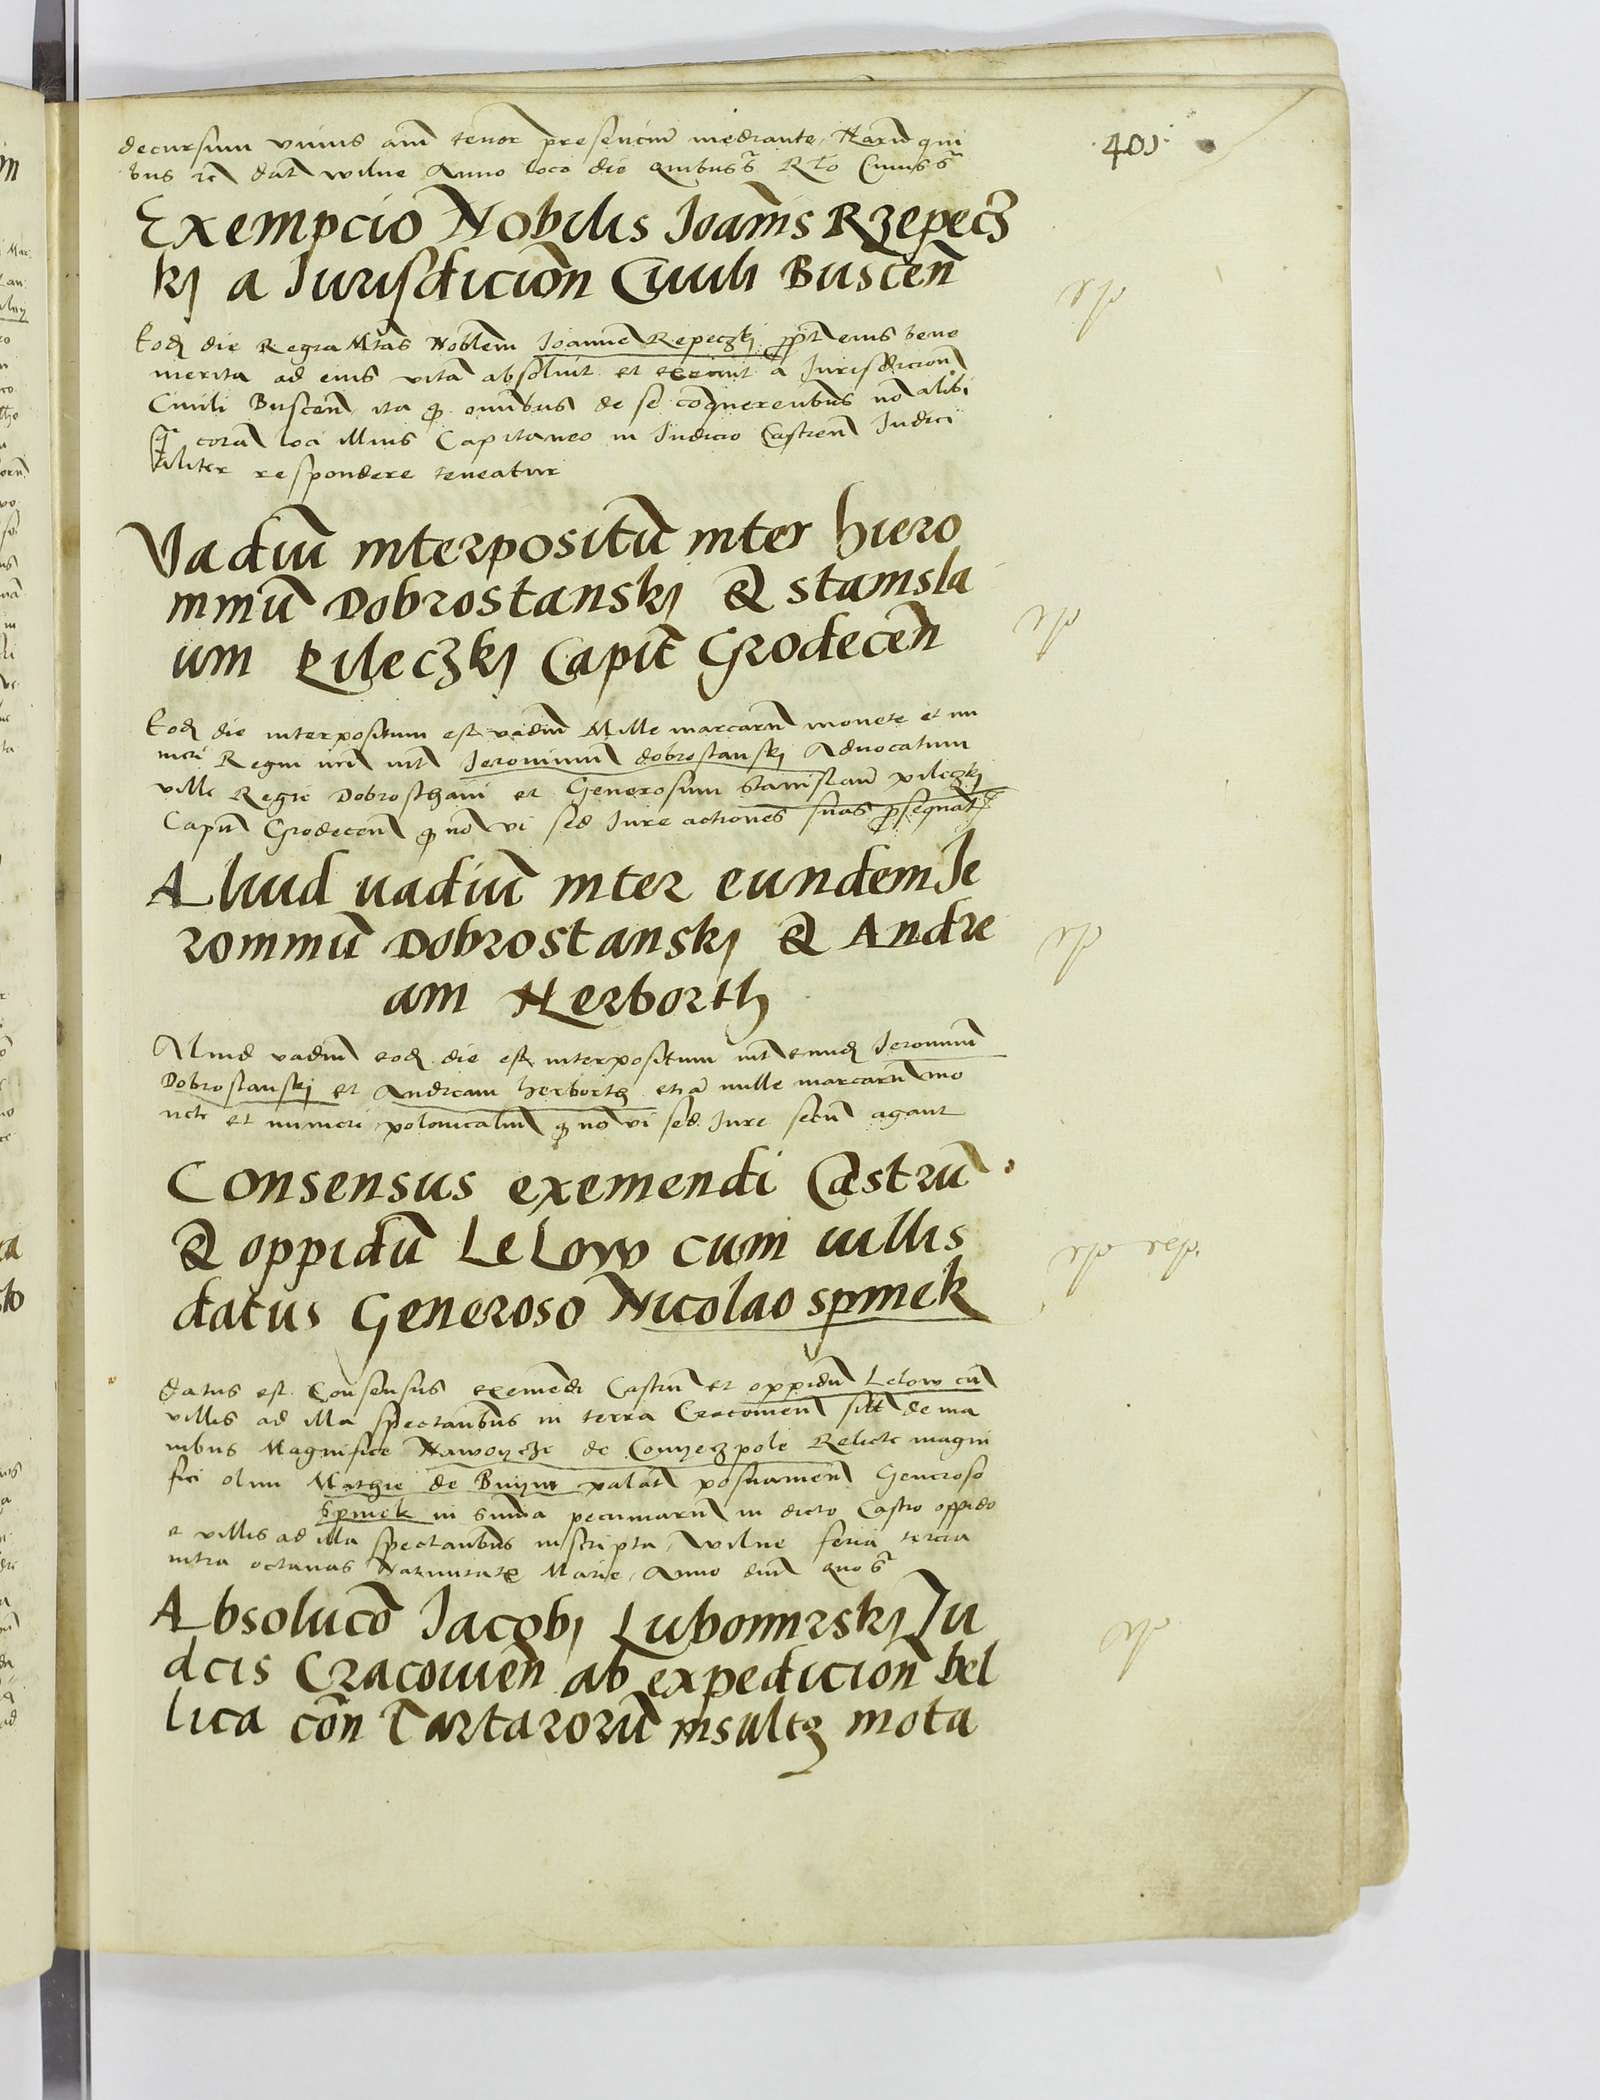 401
decursum unius anni tenor presencium mediante, Harum qui
bus rei dat wilne Anno loco die quibus s. Rlo Cuius s.
Exempcio Nobilis Joānis Rzepecz
kj a Jurisdicion Ciuili Buscēn
Eodē die Regia Mtas Nobilem Joannē Repeczkj ppt eius bene
merita ad eius vitā absoluit et exemit a Jurisdicion
Ciuili Buscen ita q omnibus de se conquerentibus nō alibi
q coram loci illius Capitaneo in Judicio Castren Judici
aliter respondere teneatur
Vadiū interpositū inter hiero
nimū Dobrostanskj & stanisla
um Pileczkj Capit Grodecēn
Eodē die interpositum est vadiū Mille marcarū monete et nu
meri Regni nri int Jeronimū dobrostanskj Advocatum
ville Regie Dobrosthani et Generosum Stanislaū pileczkj
Capit Grodecen q nō vi sed Jure actiones suas psequat
Aliud uadiū inter eundem Je
ronimū Dobrostanskj & Andre
am Herborth
Aliud vadiū eodē die est interpositum int eundē Jeronimū
Dobrostanskj et Andream herborth etiā mille marcarū mo
nete et numeri polonicaliū q nō vi sed Jure secū agant
Consensus exemendi Castrū
& oppidū Lelow cum uillis
datus Generoso Nicolao spinek
datus est Consensus exemēdi Castrū et oppidū Lelow cū
villis ad illa spectantibus in terra Cracouien sitt de ma
nibus Magnifice Nawoycze de Conyeczpole Relicte magni
fici olim Mathie de Bnyn palat posnanien Generoso
Spinek in suma pecuniarū in dicto Castro oppido
et villis ad illa spectantibus inscripta, wilne feria tercia
intra octauas Natiuitate Marie, Anno dni quo s.
Absolucō Jacobj Lubomirskj Ju
dcis Cracouiēn ab expedicion bel
lica cōn Tartarorū insultz mota